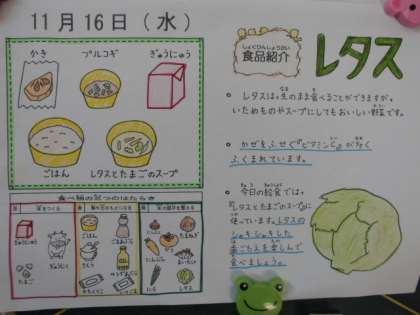 11月16日(水)
かき
プルコギ
ぎゅうにゅう
ごはん
レタスとたまごのスープ
しょくひんしょうかい
食品紹介
レタス
・レタスは、生のまま食べることができますが、
いためものやスープにしてもおいしい野菜です。
・かぜをふせぐ『ビタミンC』が多く
ふくまれています。
・今日の給食では、
『レタスとたまごのスープ』に
入っています。レタスの
シャキシャキした
歯ごたえを楽しんで
食べましょう。
食べ物の三つのはたらき
ぎゅうにゅう
ぎゅうにく
たまご
ごはん
さとう
ごまあぶら
にんじん
にら
たまねぎ
レタス